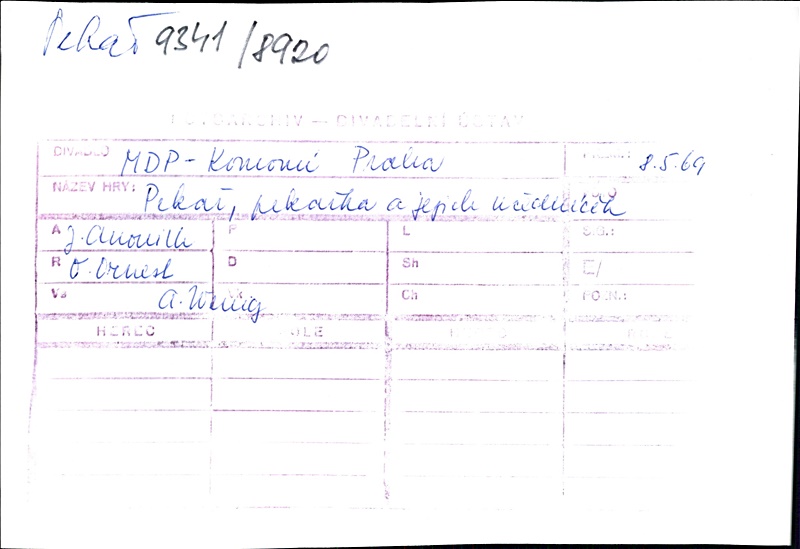 Pekař 9341/8920
FOTOARCHIV — DIVADELNÍ ÚSTAV
DIVADLO MDP - Komorní Praha 8.5.69
NÁZEV HRY: Pekař, pekařka a jejich učedníček
A J. Anouilh P L S.B.:
R O. Ornest D Sh E/
Vs A. Wenig Ch POZN.:
HEREC ROLE